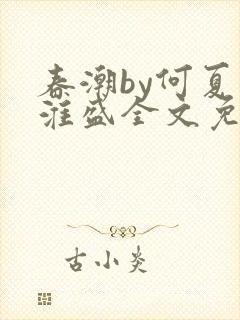 春潮by何夏
淮盛全文免
古小炎